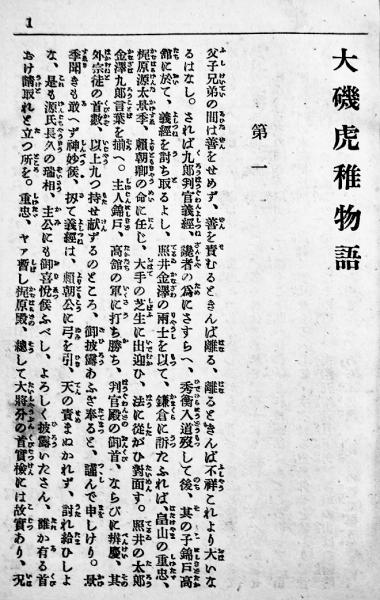 1
大磯虎稚物語
第一
父子兄弟の間は善をせめず、善を責むるときんば離る、離るときんば不祥これより大いな
るはなし。されば九郎判官義經、讒者の爲にさすらへ、秀衡入道歿して後、其の子錦戸高
館に於て、義經を討ち取るよし、照井金澤の兩士を以て、鎌倉に訴たふれば、畠山の重忠、
梶原源太景季、賴朝卿の命に任じ、大手の芝生に出迎ひ、法に從がひ對面す。照井の太郎
金澤九郎言葉を揃へ。主人錦戸、高舘の軍に打ち勝ち、判官殿の御首、ならびに辨慶、其
外宗徒の首數、以上九つ持せ獻ずるのところ、御披露あふぎ奉ると、謹んで申しけり。景
季聞きも敢へず神妙候、扨て義經は、賴朝公に弓を引、天の責まぬかれず、討れ給ひしよ
な、是も源氏長久の瑞相、主公にも御喜び候ふべし、よろしく披露いたさん、誰か有る首
おけ請取れと立つ所を。重忠、ヤァ暫し梶原殿、總して大將分の首實檢には故實あり、况